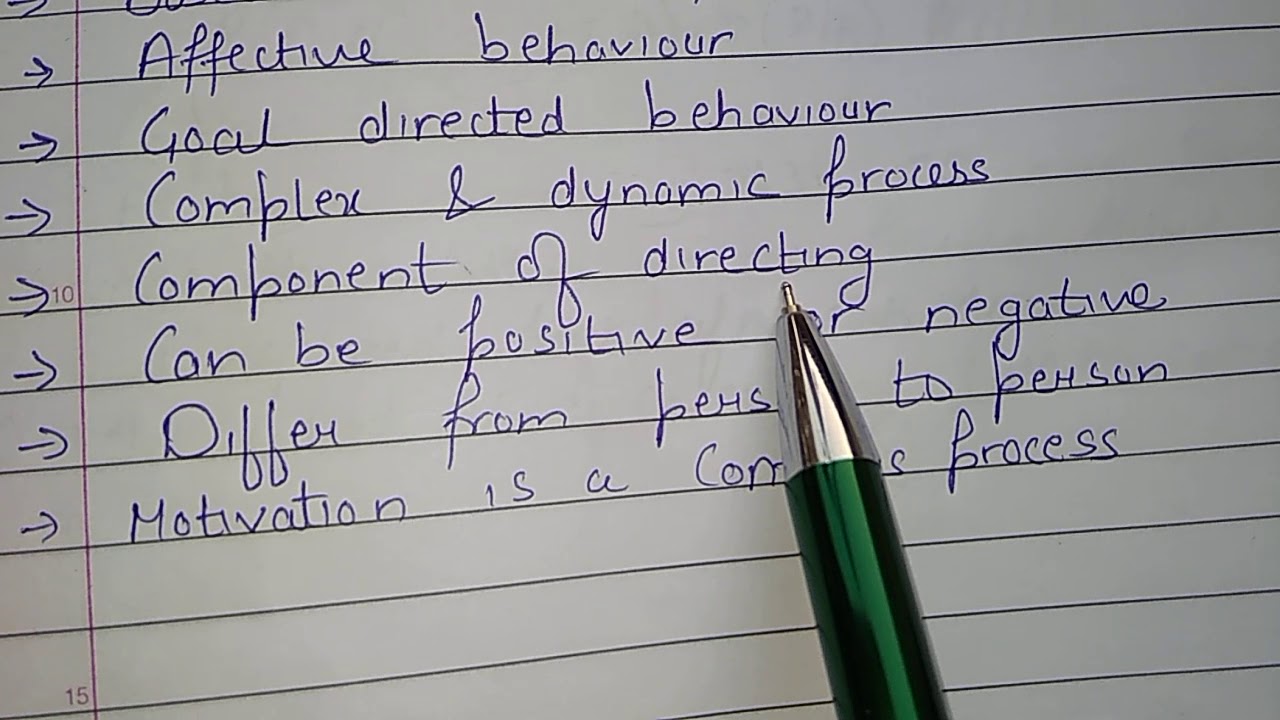 → Affective behaviour
→ Goal directed behaviour
→ Complex & dynamic process
10 → Component of directing
→ Can be positive or negative
→ Differ from to person
→ Motivation is a process
15